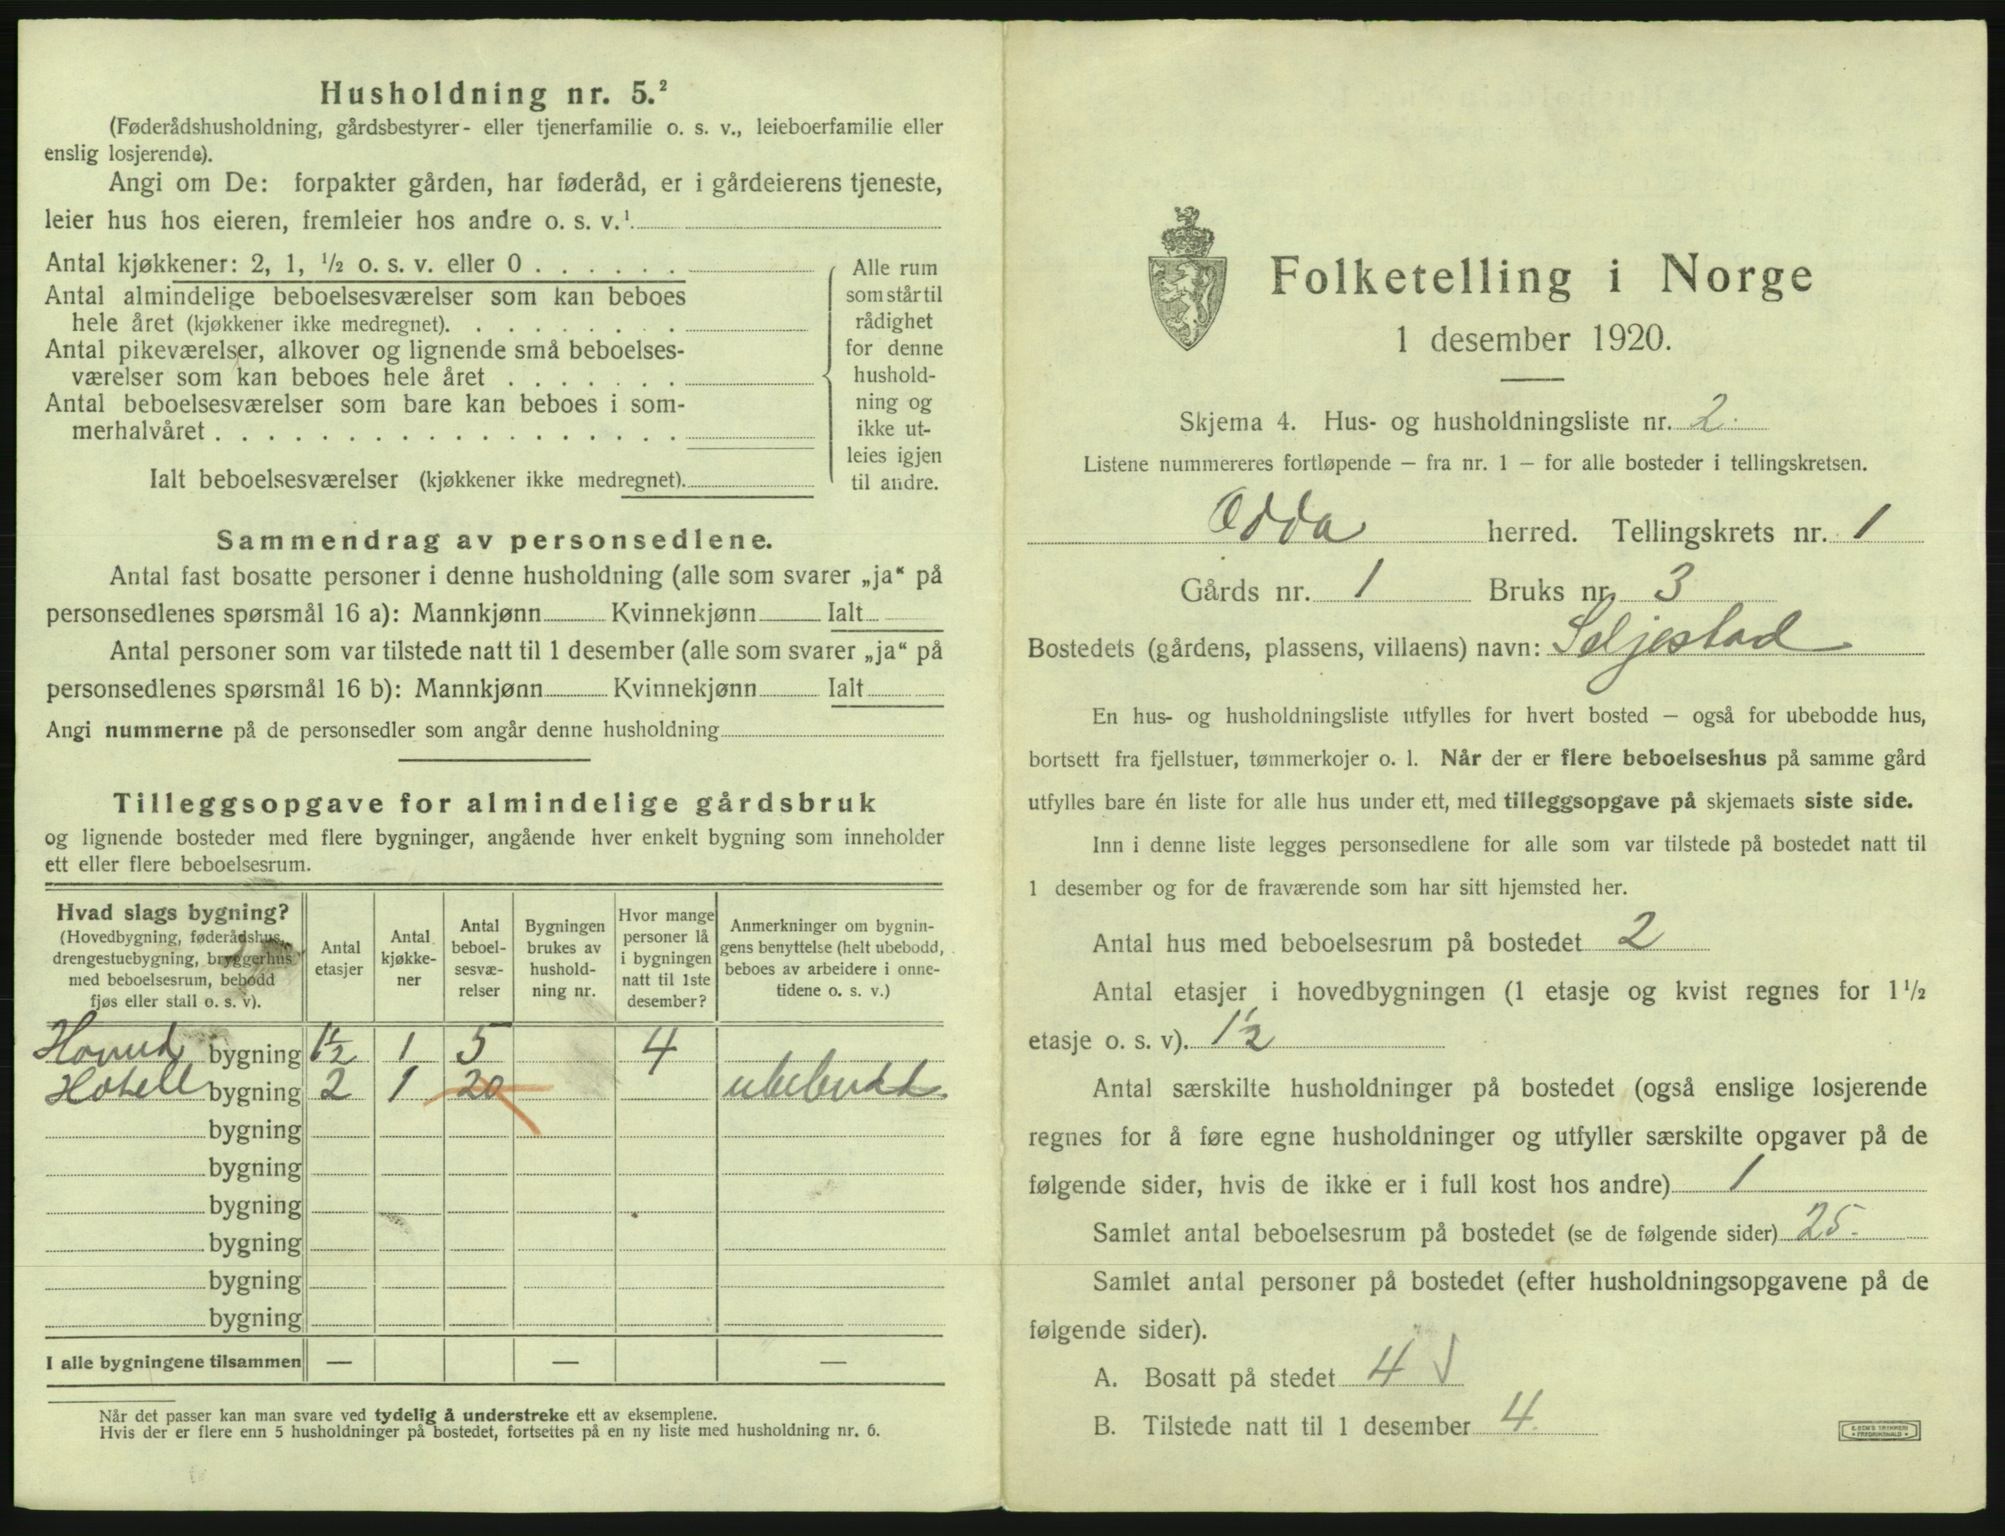 Husholdning nr. 5.²
(Føderådshusholdning, gårdsbestyrer- eller tjenerfamilie o. s. v., leieboerfamilie eller
enslig losjerende).
Angi om De: forpakter gården, har føderåd, er i gårdeierens tjeneste,
leier hus hos eieren, fremleier hos andre o. s. v.¹
Antal kjøkkener: 2, 1, ½ o. s. v. eller 0 . . . . . .
Antal almindelige beboelsesværelser som kan beboes
hele året (kjøkkener ikke medregnet). . . . . . . . .
Antal pikeværelser, alkover og lignende små beboelses-
værelser som kan beboes hele året . . . . . . .
Antal beboelsesværelser som bare kan beboes i som-
merhalvåret . . . . . . . . . . . . . . . . . .
Ialt beboelsesværelser (kjøkkener ikke medregnet).
Alle rum
som står til
rådighet
for denne
hushold-
ning og
ikke ut-
leies igjen
til andre.
Sammendrag av personsedlene.
Antal fast bosatte personer i denne husholdning (alle som svarer „ja“ på
personsedlenes spørsmål 16 a): Mannkjønn Kvinnekjønn Ialt
Antal personer som var tilstede natt til 1 desember (alle som svarer „ja“ på
personsedlenes spørsmål 16 b): Mannkjønn Kvinnekjønn Ialt
Angi nummerne på de personsedler som angår denne husholdning
Tilleggsopgave for almindelige gårdsbruk
og lignende bosteder med flere bygninger, angående hver enkelt bygning som inneholder
ett eller flere beboelsesrum.
Hvad slags bygning?
(Hovedbygning, føderådshus,
drengestuebygning, bryggerhus
med beboelsesrum, bebodd
fjøs eller stall o. s. v).
Antal
etasjer
Antal
kjøkke-
ner
Antal
beboel-
sesvæ-
relser
Bygningen
brukes av
hushold-
ning nr.
Hvor mange
personer lå
i bygningen
natt til 1ste
desember?
Anmerkninger om bygnin-
gens benyttelse (helt ubebodd,
beboes av arbeidere i onne-
tidene o. s. v.)
bygning 1½ 1 5 4
Hotell bygning 2 1 20 ubebudd
bygning
bygning
bygning
bygning
bygning
bygning
I alle bygningene tilsammen — — —
Når det passer kan man svare ved tydelig å understreke ett av eksemplene.
Hvis der er flere enn 5 husholdninger på bostedet, fortsettes på en ny liste med husholdning nr. 6.
Folketelling i Norge
1 desember 1920.
Skjema 4. Hus- og husholdningsliste nr. 2.
Listene nummereres fortløpende — fra nr. 1 — for alle bosteder i tellingskretsen.
Odda herred. Tellingskrets nr. 1
Gårds nr. 1 Bruks nr. 3
Bostedets (gårdens, plassens, villaens) navn: Seljestad
En hus- og husholdningsliste utfylles for hvert bosted — også for ubebodde hus,
bortsett fra fjellstuer, tømmerkojer o. l. Når der er flere beboelseshus på samme gård
utfylles bare én liste for alle hus under ett, med tilleggsopgave på skjemaets siste side.
Inn i denne liste legges personsedlene for alle som var tilstede på bostedet natt til
1 desember og for de fraværende som har sitt hjemsted her.
Antal hus med beboelsesrum på bostedet 2
Antal etasjer i hovedbygningen (1 etasje og kvist regnes for 1½
etasje o. s. v). 1½
Antal særskilte husholdninger på bostedet (også enslige losjerende
regnes for å føre egne husholdninger og utfyller særskilte opgaver på de
følgende sider, hvis de ikke er i full kost hos andre) 1
Samlet antal beboelsesrum på bostedet (se de følgende sider) 25.
Samlet antal personer på bostedet (efter husholdningsopgavene på de
følgende sider).
A. Bosatt på stedet 4 √
B. Tilstede natt til 1 desember 4.